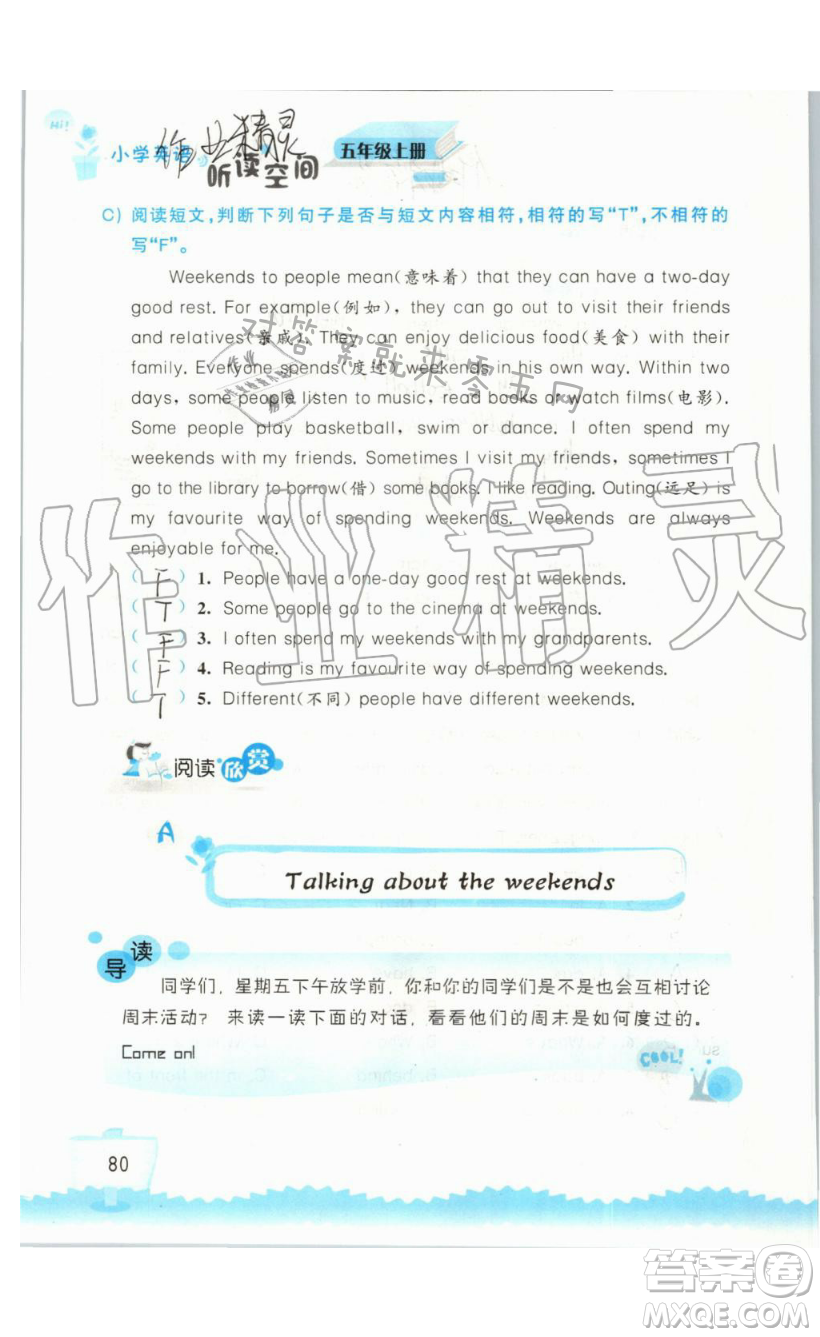 Hi!
小学英语
作业精灵
听读空间
五年级上册
C) 阅读短文,判断下列句子是否与短文内容相符,相符的写“T”,不相符的
写“F”。
Weekends to people mean(意味着) that they can have a two-day
good rest. For example(例如), they can go out to visit their friends
and relatives(亲戚). They can enjoy delicious food(美食) with their
family. Everyone spends(度过) weekends in his own way. Within two
days, some people listen to music, read books or watch films(电影).
Some people play basketball, swim or dance. I often spend my
weekends with my friends. Sometimes I visit my friends, sometimes I
go to the library to borrow(借) some books. I like reading. Outing(远足) is
my favourite way of spending weekends. Weekends are always
enjoyable for me.
( F ) 1. People have a one-day good rest at weekends.
( T ) 2. Some people go to the cinema at weekends.
( F ) 3. I often spend my weekends with my grandparents.
( F ) 4. Reading is my favourite way of spending weekends.
( T ) 5. Different(不同) people have different weekends.
对答案就来零五网
作业精灵
作业精灵
阅读欣赏
A
Talking about the weekends
导读
同学们, 星期五下午放学前, 你和你的同学们是不是也会互相讨论
周末活动? 来读一读下面的对话, 看看他们的周末是如何度过的。
Come on!
COOL!
80
答案卷
MXQE.COM